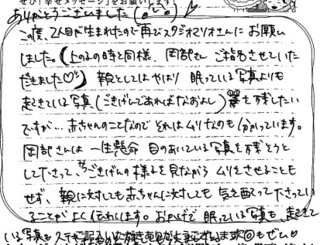 ぜひ「幸せメッセージ」をお願いします
ありがとうございました(^o^)
この度、2人目が生まれたので再びスタジオマリオさんにお願い
しました。(上の子の時と同様、岡部さんご指名させていた
だきました♡) 親としてはやはり眠っている写真よりも
起きている写真(ごきげんであればなおよし)を残したい
ですが…赤ちゃんのことなのでそればムリなのも分かっています。
岡部さんは一生懸命目のあいている写真を残そうと
して下さって、ごきげんの様子を見ながらムリをさせることも
せず、親に対しても赤ちゃんに対しても気を配って下さってい
ることがよく伝わります。おかげで眠っている写真も、起きて
いる写真も